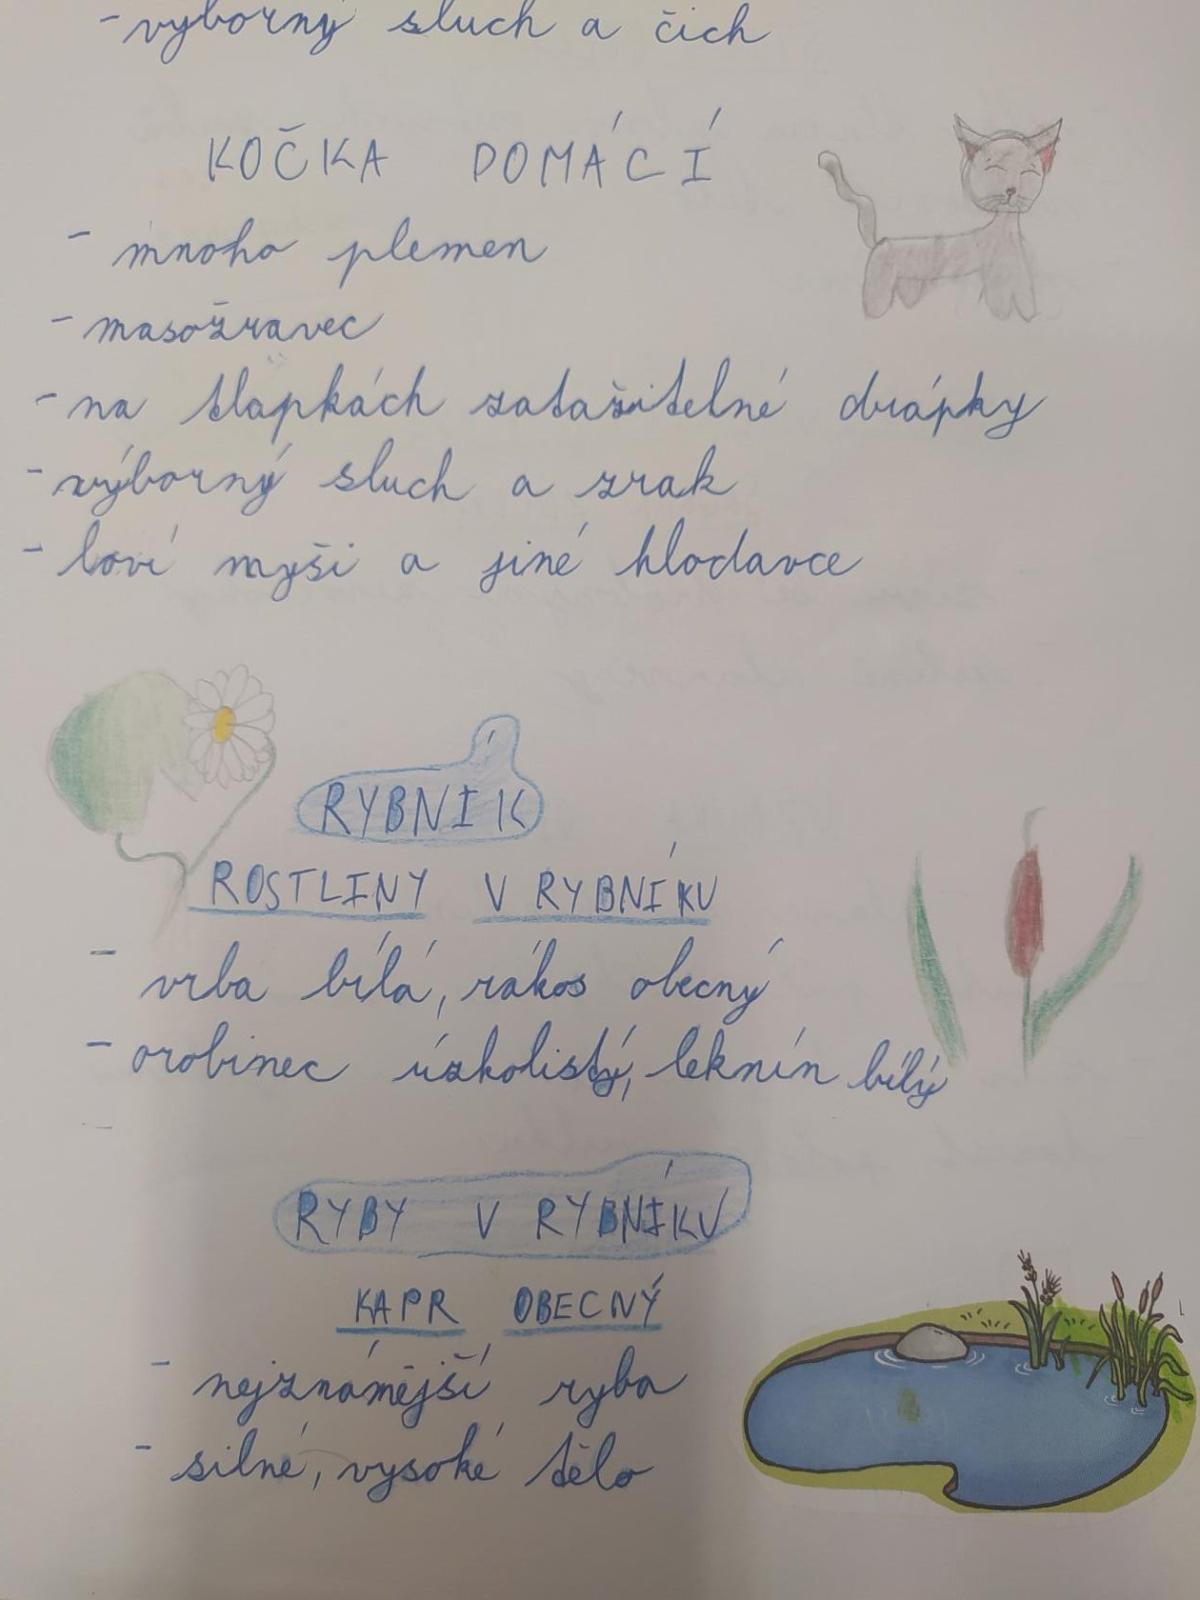 -výborný sluch a čich
KOČKA DOMÁCÍ
- mnoho plemen
- masožravec
- na tlapkách zatažitelné drápky
- výborný sluch a zrak
- loví myši a jiné hlodavce
RYBNÍK
ROSTLINY V RYBNÍKU
- vrba bílá, rákos obecný
- orobinec úzkolistý, leknín bílý
RYBY V RYBNÍKU
KAPR OBECNÝ
- nejznámější ryba
- silné, vysoké tělo